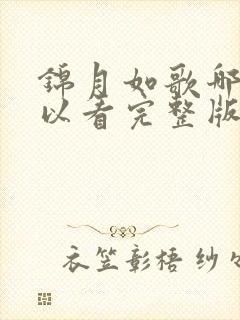 锦月如歌哪
以看完整版
衣笠彰梧 纱